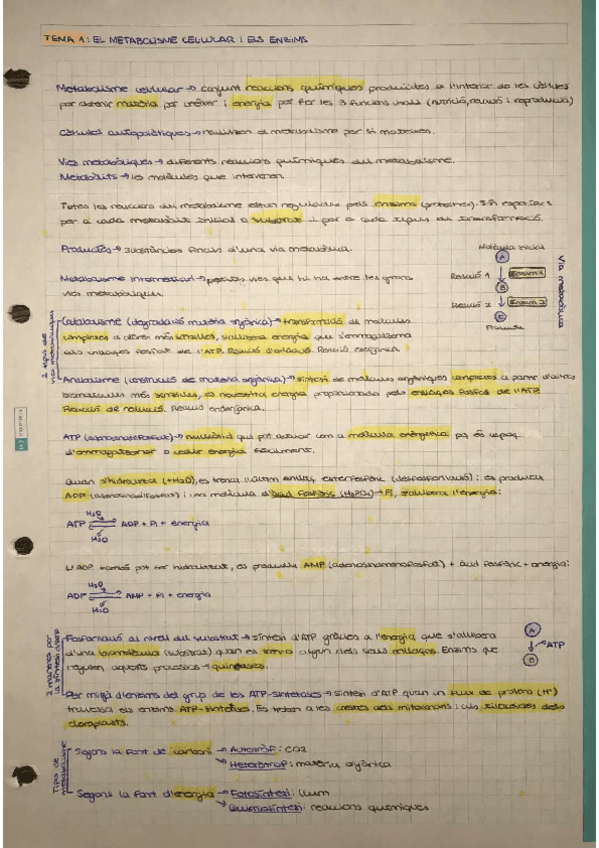 TEMA 1: EL METABOLISME CEL·LULAR I ELS ENZIMS
Metabolisme cel·lular → conjunt reaccions químiques produïdes a l'interior de les cèl·lules
per obtenir matèria per créixer i energia per fer les 3 funcions vitals (nutrició, relació i reproducció)
Cèl·lules autopoiètiques → realitzen el metabolisme per si mateixes.
Vies metabòliques → diferents reaccions químiques del metabolisme.
Metabòlits → les molècules que intervenen.
Totes les reaccions del metabolisme estan regulades pels enzims (proteïnes). per a cada metabòlit inicial o substrat i per a cada tipus de transformació.
Productes → substàncies finals d'una via metabòlica.
Metabolisme intermediari → petites vies que hi ha entre les grans
vies metabòliques.
Molècula inicial
A
Reacció 1
Enzim 1
B
Reacció 2
Enzim 2
C
Producte
Via metabòlica
2 tipus de
vies metabòliques
Catabolisme (degradació matèria orgànica) → transformació de molècules
complexes a altres més senzilles, s'allibera energia que s'emmagatzema
als enllaços fosfat de l'ATP. Reacció d'oxidació. Reacció exergònica.
Anabolisme (construcció de matèria orgànica) → síntesi de molècules orgàniques complexes a partir d'altres
biomolècules més senzilles, es necessita energia proporcionada pels enllaços fosfat de l'ATP.
Reacció de reducció. Reacció endergònica.
ATP (adenosinatrifosfat) → nucleòtid que pot actuar com a molècula energètica pq és capaç
d'emmagatzemar o cedir energia fàcilment.
Quan s'hidrolitza (+H2O), es trenca l'últim enllaç èsterfosfòric (desfosforilació) i es produeix
ADP (adenosinadifosfat) i una molècula d'àcid fosfòric (H3PO4) → Pi, s'allibera l'energia:
H2O
ATP ⇌ ADP + Pi + energia
H2O
L'ADP també pot ser hidrolitzat, es produeix AMP (adenosinamonofosfat) + àcid fosfòric + energia:
H2O
ADP ⇌ AMP + Pi + energia
H2O
2 maneres per
la síntesi d'ATP
Fosforilació al nivell del substrat → síntesi d'ATP gràcies a l'energia que s'allibera
d'una biomolècula (substrat) quan es trenca algun dels seus enllaços. Enzims que
regulen aquests processos → quinases.
A
→ATP
B
Per mitjà d'enzims del grup de les ATP-sintetases → síntesi d'ATP quan un flux de protons (H+)
travessa els enzims ATP-sintetases. Es troben a les crestes dels mitocondris i als tilacoides dels
cloroplasts.
Tipus de
metabolisme
Segons la font de carboni → Autòtrof: CO2
→ Heteròtrof: matèria orgànica
Segons la font d'energia → Fotosíntesi: llum
→ Quimiosíntesi: reaccions químiques
WUOLAH